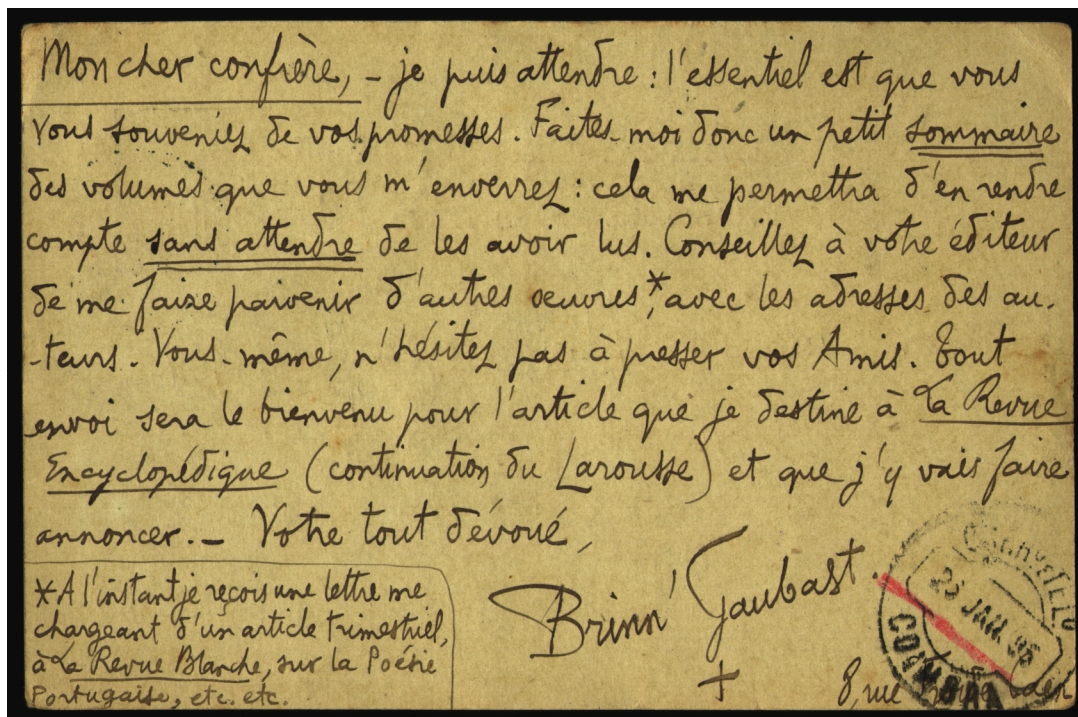 Mon cher confrère, - je puis attendre : l'essentiel est que vous
vous souveniez de vos promesses. Faites-moi donc un petit sommaire
des volumes que vous m'enverrez : cela me permettra d'en rendre
compte sans attendre de les avoir lus. Conseillez à votre éditeur
de me faire parvenir d'autres oeuvres,* avec les adresses des au-
-teurs. Vous-même, n'hésitez pas à presser vos Amis. Tout
envoi sera le bienvenu pour l'article que je destine à La Revue
Encyclopédique (continuation du Larousse) et que j'y vais faire
annoncer. - Votre tout dévoué,
Brinn' Gaubast.
* A l'instant je reçois une lettre me
chargeant d'un article trimestriel,
à La Revue Blanche, sur la Poésie
Portugaise, etc. etc.
8, rue
25 JAN. 95
COIMBRA